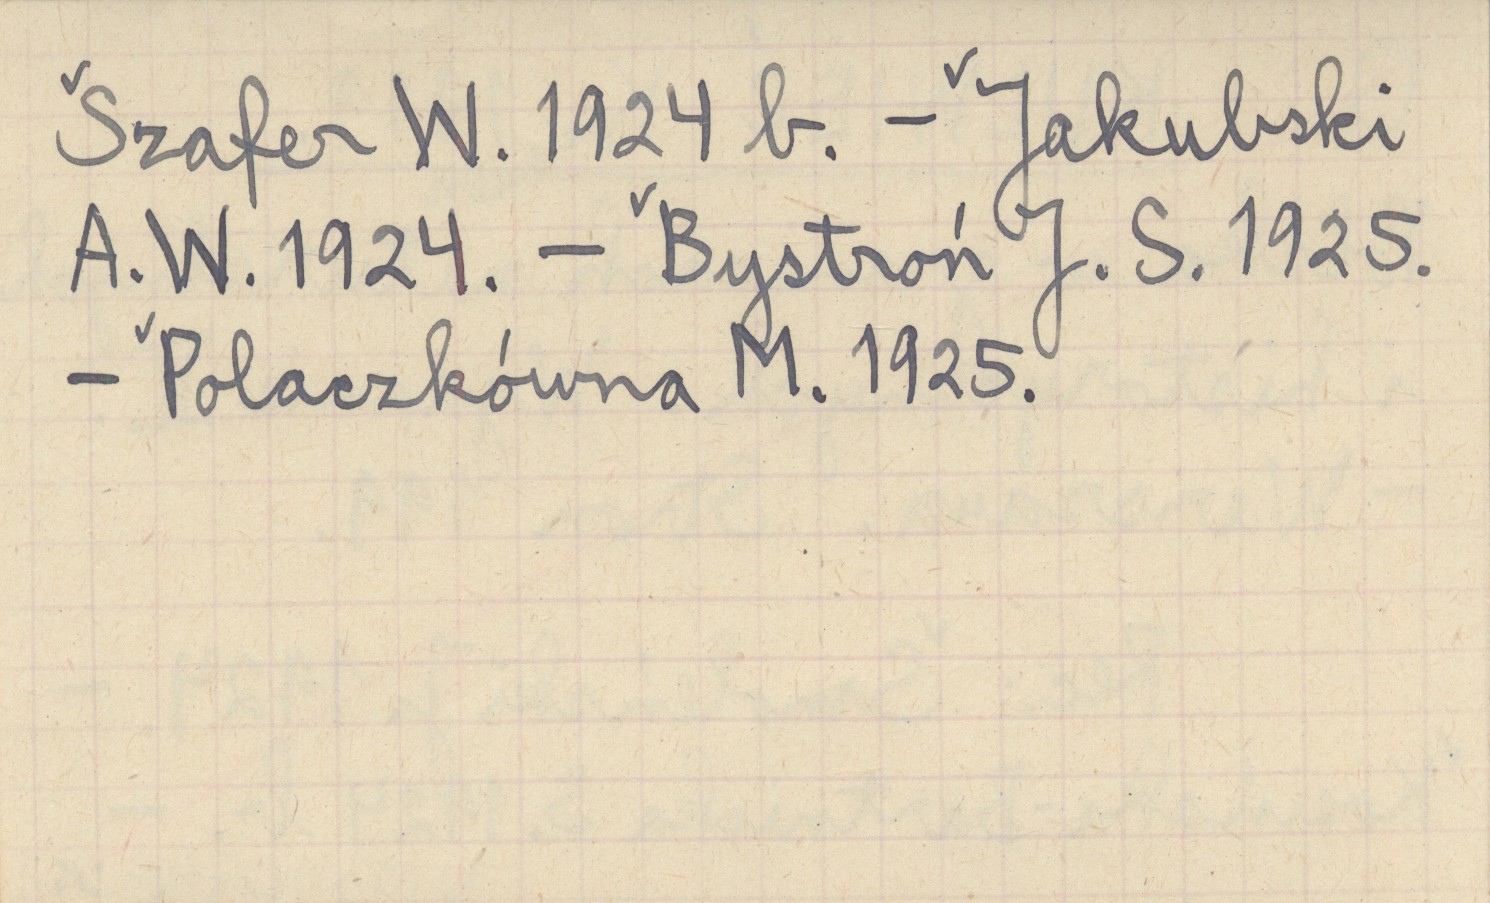 ˇSzafer W. 1924 b. – ˇJakubski
A. W. 1924. – ˇBystroń J. S. 1925.
– ˇPolaczkówna M. 1925.